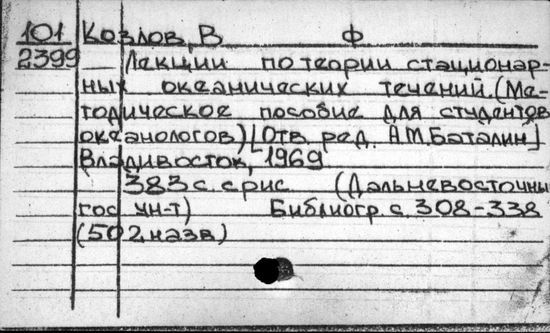 101 Козлов, В Ф
2399 Лекции по теории стационар-
ных океанических течений. (Ме-
тодическое пособие для студентов
океанологов) [Отв. ред. А.М. Баталин]
Владивосток, 1969
383 с. с рис (Дальневосточны
гос ун-т) Библиогр с. 308-338
(502 назв)